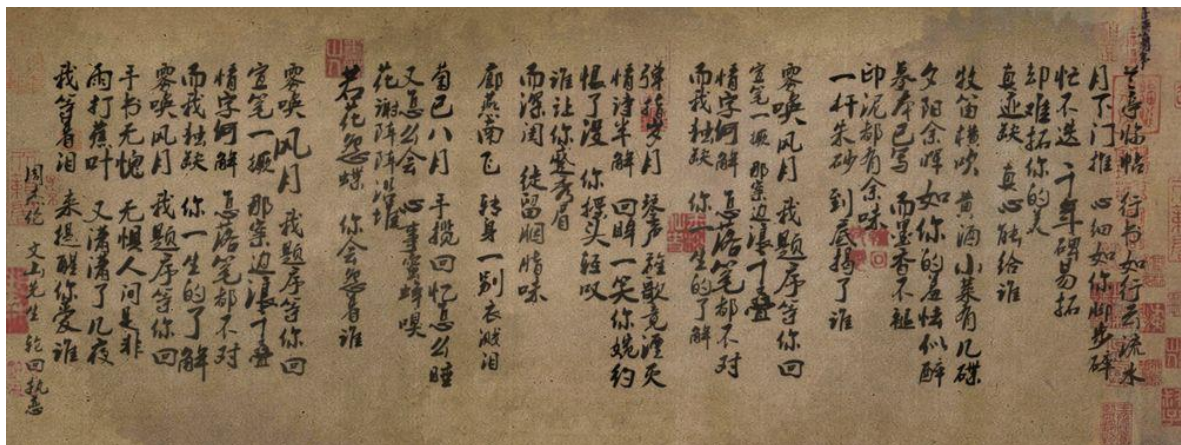 兰亭临帖 行书如行云流水
月下门推 心细如你脚步碎
忙不迭 千年碑易拓
却难拓你的美
真迹缺 真心能给谁
牧笛横吹 黄酒小菜有几碟
夕阳余晖 如你的羞怯似醉
摹本已写 而墨香不褪
印泥都有余味
一杆朱砂 到底揭了谁
零唤风月 我题序等你回
宣笔一撅 那案边浪千叠
情字何解 怎落笔都不对
而我独缺 你一生的了解
弹指岁月 琴声雅歌竟湮灭
情诗半解 回眸一笑你婉约
恨了没 你摇头轻叹
谁让你蹙着眉
而深闺 徒留胭脂味
廊燕南飞 转身一别衣溅泪
菊已八月 手揽回忆怎么睡
又怎么会 心事蜜蜂嗅
花谢阵阵泥堆
若花怨蝶 你会怨着谁
零唤风月 我题序等你回
宣笔一撅 那案边浪千叠
情字何解 怎落笔都不对
而我独缺 你一生的了解
零唤风月 我题序等你回
手书无愧 无惧人间是非
雨打蕉叶 又潇潇了几夜
我等着泪 来提醒你爱谁
周杰伦 文山先生